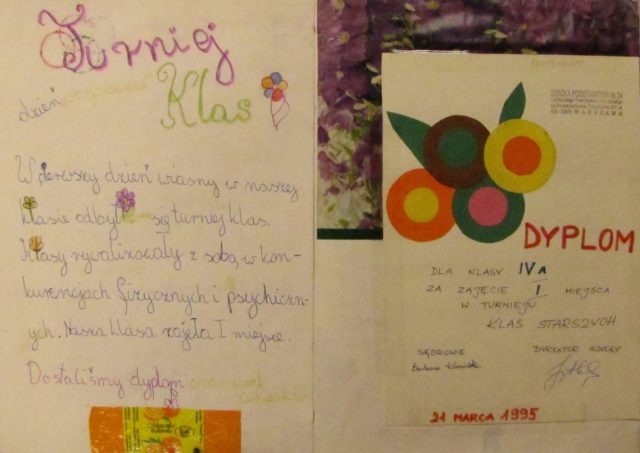 Turniej
Klas
dzień
W pierwszy dzień wiosny w naszej
klasie odbył się turniej klas.
Klasy rywalizowały z sobą w kon-
kurencjach fizycznych i psychiczn-
ych. Nasza klasa zajęła I miejsce.
Dostaliśmy dyplom
SZKOŁA PODSTAWOWA Nr
WARSZAWA
DYPLOM
DLA KLASY IV A
ZA ZAJĘCIE I MIEJSCA
W TURNIEJU
KLAS STARSZYCH
SĘDZIOWIE DYREKTOR SZKOŁY
21 MARCA 1995